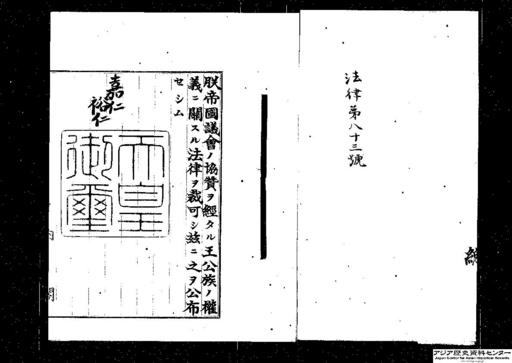 法律第八十三號
朕帝國議會ノ協贊ヲ經タル王公族ノ權
義ニ關スル法律ヲ裁可シ茲ニ之ヲ公布
セシム
嘉仁
裕仁
天皇
御璽
アジア歴史資料センター
Japan Center for Asian Historical Records